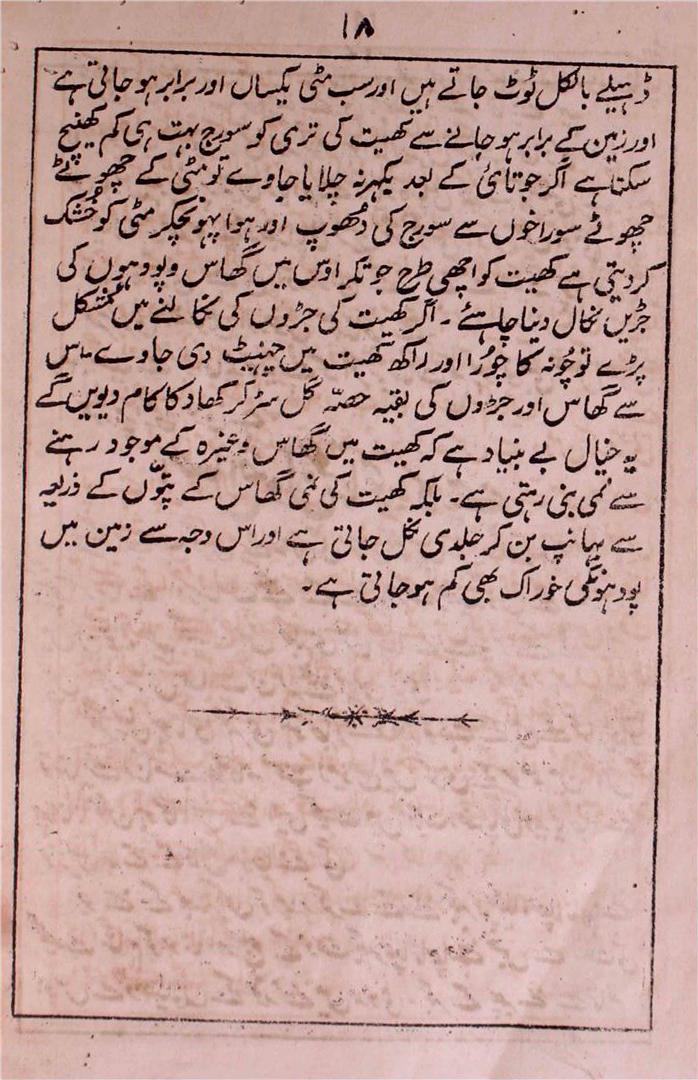 ۱۸
ڈہیلے بالکل ٹوٹ جاتے ہیں اور سب مٹی یکساں اور برابر ہو جاتی ہے
اور زمین کے برابر ہو جانے سے کھیت کی تری کو سورج بہت ہی کم کھینچ
سکتا ہے اگر جوتائی کے بعد یکہرنہ چلایا جاوے تو مٹی کے چھوٹے
چھوٹے سوراخوں سے سورج کی دھوپ اور ہوا پہونچکر مٹی کو خشک
کر دیتی ہے کھیت کو اچھی طرح جوتکر اوس میں گھاس و پودہوں کی
جڑیں نکال دینا چاہئے ۔ اگر کھیت کی جڑوں کی نکالنے میں مشکل
پڑے تو چُونہ کا چُورا اور راکھ کھیت میں چھینٹ دی جاوے ۔ اس
سے گھاس اور جڑوں کی بقیہ حصّہ گل سڑ کر کھاد کا کام دیویں گے
یہ خیال بے بنیاد ہے کہ کھیت میں گھاس وغیرہ کے موجود رہنے
سے نمی بنی رہتی ہے ۔ بلکہ کھیت کی نمی گھاس کے پتّوں کے ذریعہ
سے بہانپ بن کر جلدی نکل جاتی ہے اور اس وجہ سے زمین میں
پودہونکی خوراک بھی کم ہو جاتی ہے ۔